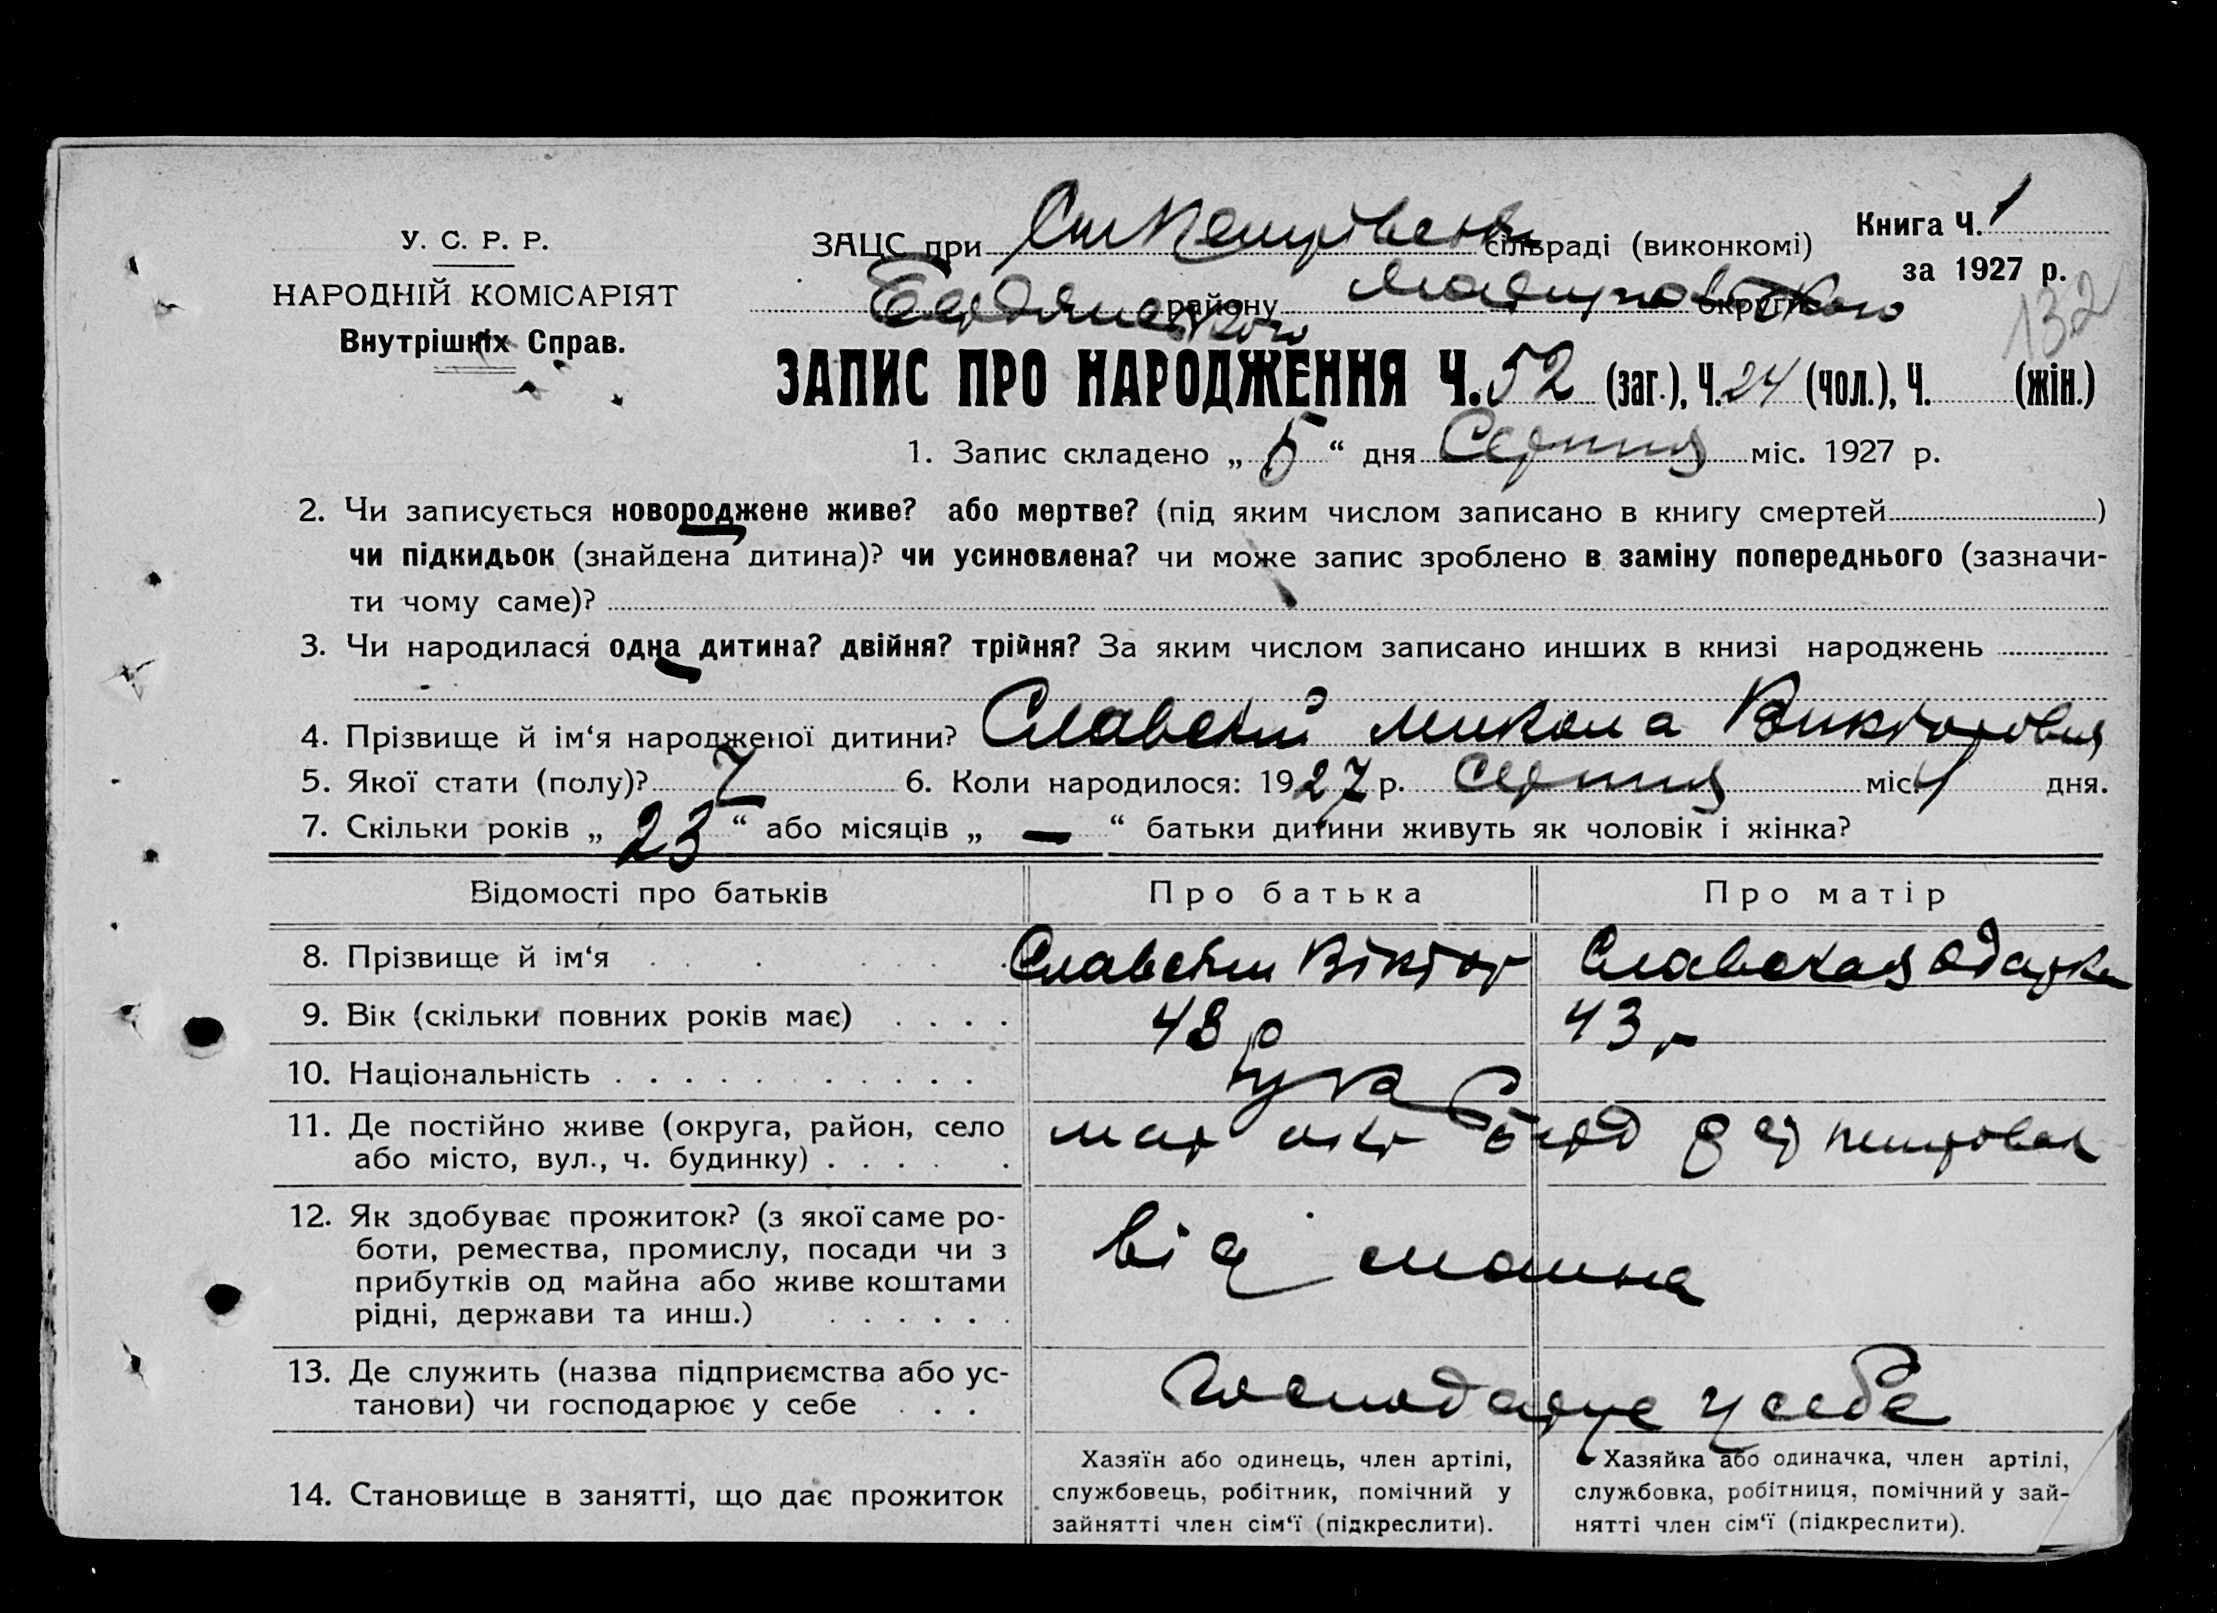 У. С. Р. Р.
НАРОДНІЙ КОМІСАРІЯТ
Внутрішніх Справ.
ЗАЦС при сільраді (виконкомі)
Книга Ч. 1
за 1927 р.
132
Бердянського району Маріупольського округи
ЗАПИС ПРО НАРОДЖЕННЯ Ч. 52 (заг.), Ч. 24 (чол.), Ч. (жін.)
1. Запис складено „ 5 “ дня Серпня міс. 1927 р.
2. Чи записується новороджене живе? або мертве? (під яким числом записано в книгу смертей )
чи підкидьок (знайдена дитина)? чи усиновлена? чи може запис зроблено в заміну попереднього (зазначи-
ти чому саме)?
3. Чи народилася одна дитина? двійня? трійня? За яким числом записано инших в книзі народжень
4. Прізвище й ім‘я народженої дитини? Славский Микола Викторович
5. Якої стати (полу)? 6. Коли народилося: 1927 р. Серпня міс. 1 дня.
7. Скільки років „ 23 “ або місяців „ — “ батьки дитини живуть як чоловік і жінка?
Відомості про батьків Про батька Про матір
8. Прізвище й ім‘я Славский Віктор Славская Одарка
9. Вік (скільки повних років має) 48 р 43 р
10. Національність укр
11. Де постійно живе (округа, район, село
або місто, вул., ч. будинку) мар окр Берд
12. Як здобуває прожиток? (з якої саме ро-
боти, ремества, промислу, посади чи з
прибутків од майна або живе коштами
рідні, держави та инш.)
від
13. Де служить (назва підприємства або ус-
танови) чи господарює у себе
господарює у себе
14. Становище в занятті, що дає прожиток
Хазяїн або одинець, член артілі,
службовець, робітник, помічний у
зайнятті член сім‘ї (підкреслити).
Хазяйка або одиначка, член артілі,
службовка, робітниця, помічний у зай-
нятті член сім‘ї (підкреслити).